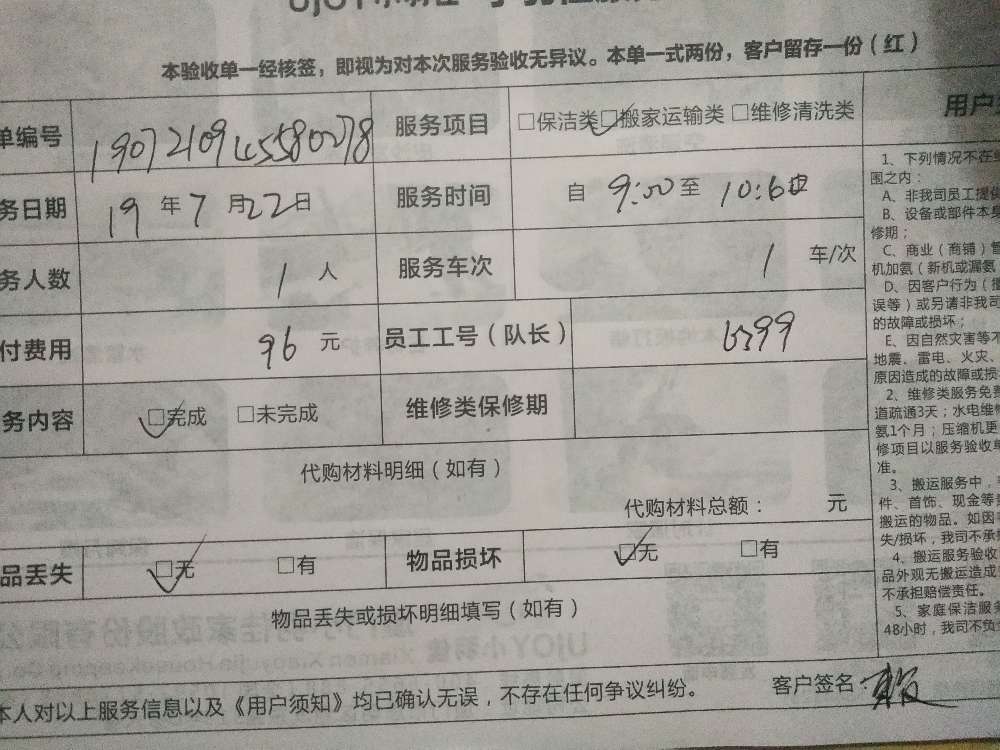 本验收单一经核签，即视为对本次服务验收无异议。本单一式两份，客户留存一份（红）
单编号 19072109455580078 服务项目 □保洁类 ☑搬家运输类 □维修清洗类
务日期 19 年 7 月 22 日 服务时间 自 9:00 至 10:60
务人数 1 人 服务车次 1 车/次
付费用 96 元 员工工号（队长） 6399
务内容 ☑完成 □未完成 维修类保修期
代购材料明细（如有）
代购材料总额： 元
品丢失 ☑无 □有 物品损坏 ☑无 □有
物品丢失或损坏明细填写（如有）
本人对以上服务信息以及《用户须知》均已确认无误，不存在任何争议纠纷。 客户签名：
用户
1、下列情况不在
围之内：
A、非我司员工提供
B、设备或部件本身
修期；
C、商业（商铺）
机加氨（新机或漏氨
D、因客户行为（
误等）或另请非我司
的故障或损坏；
E、因自然灾害等不
地震、雷电、火灾、
原因造成的故障或损
2、维修类服务免费
道疏通3天；水电维修
氨1个月；压缩机更
修项目以服务验收单
准。
3、搬运服务中，
件、首饰、现金等
搬运的物品。如因
失/损坏，我司不承担
4、搬运服务验收
品外观无搬运造成
不承担赔偿责任。
5、家庭保洁服务
48小时，我司不负